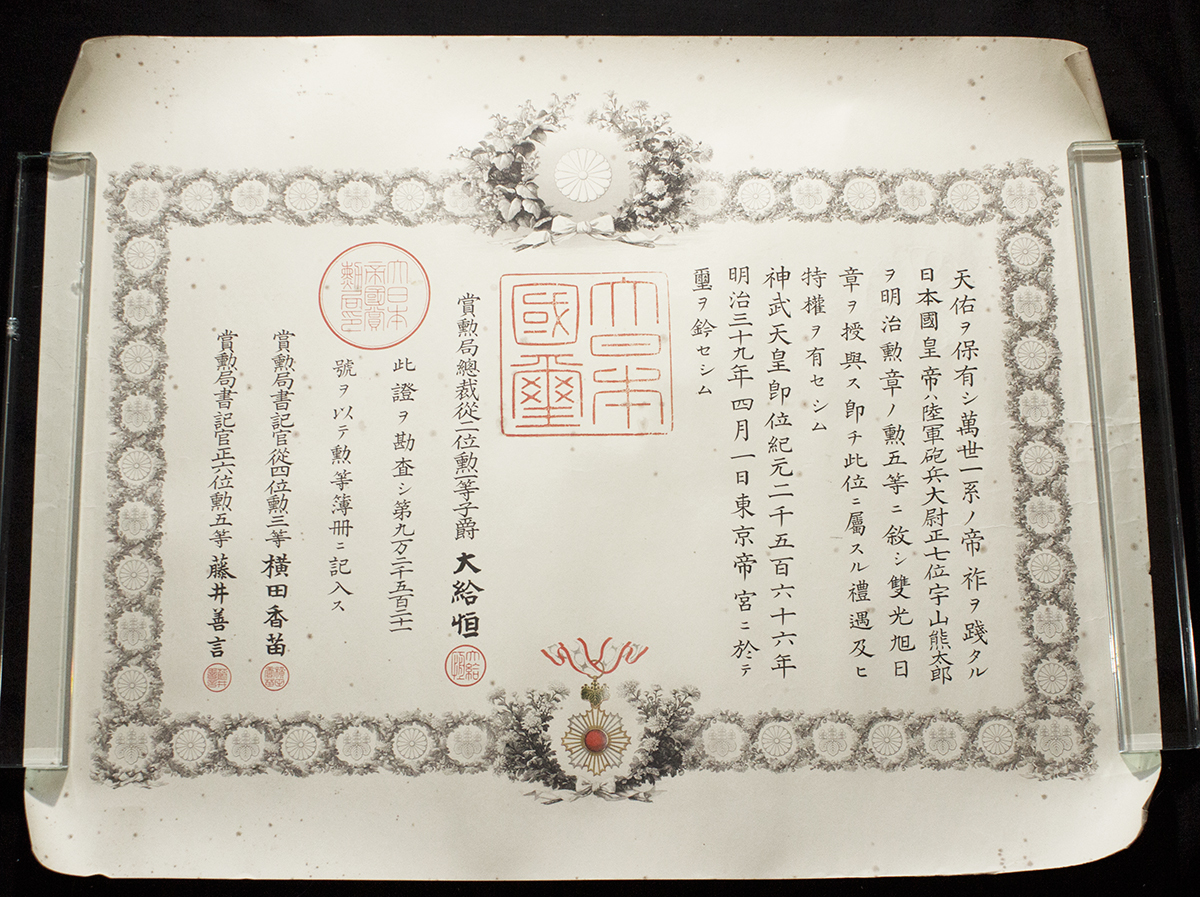 天佑ヲ保有シ萬世一系ノ帝祚ヲ踐タル
日本國皇帝ハ陸軍砲兵大尉正七位宇山熊太郎
ヲ明治勲章ノ勲五等ニ敘シ雙光旭日
章ヲ授與ス卽チ此位ニ屬スル禮遇及ヒ
特權ヲ有セシム
神武天皇卽位紀元二千五百六十六年
明治三十九年四月一日東京帝宮ニ於テ
璽ヲ鈐セシム
大日本
國璽
賞勲局總裁從二位勲一等子爵 大給恒
大日本
帝國賞
勲局印
此證ヲ勘査シ第九万二千五百二十一
號ヲ以テ勲等簿册ニ記入ス
賞勲局書記官從四位勲三等 橫田香苗
賞勲局書記官正六位勲五等 藤井善言